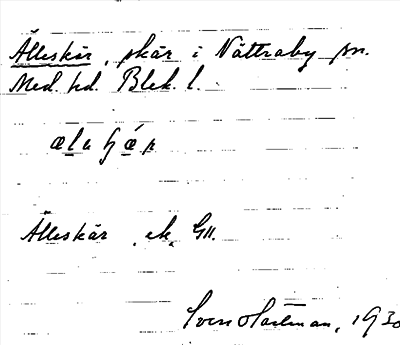 Älleskär, skär i Nättraby sn.
Med. hd. Blek. l.
Älleskär, ek. GII.
Sven Hartman, 1930